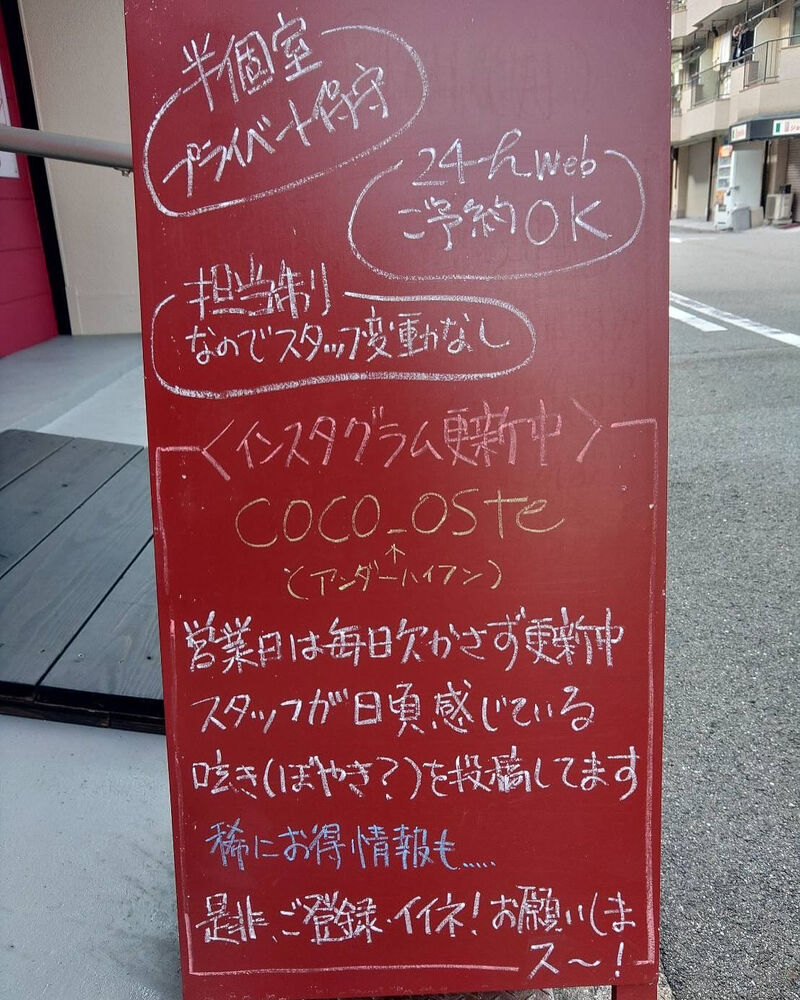 半個室
プライベート保守
24h Web
ご予約OK
担当制
なのでスタッフ変動なし
〈インスタグラム更新中〉
COCO_OSte
↑
(アンダーハイフン)
営業日は毎日欠かさず更新中
スタッフが日頃感じている
呟き(ぼやき?)を投稿してます
稀にお得情報も.....
是非、ご登録・イイネ!お願いしま
ス～!